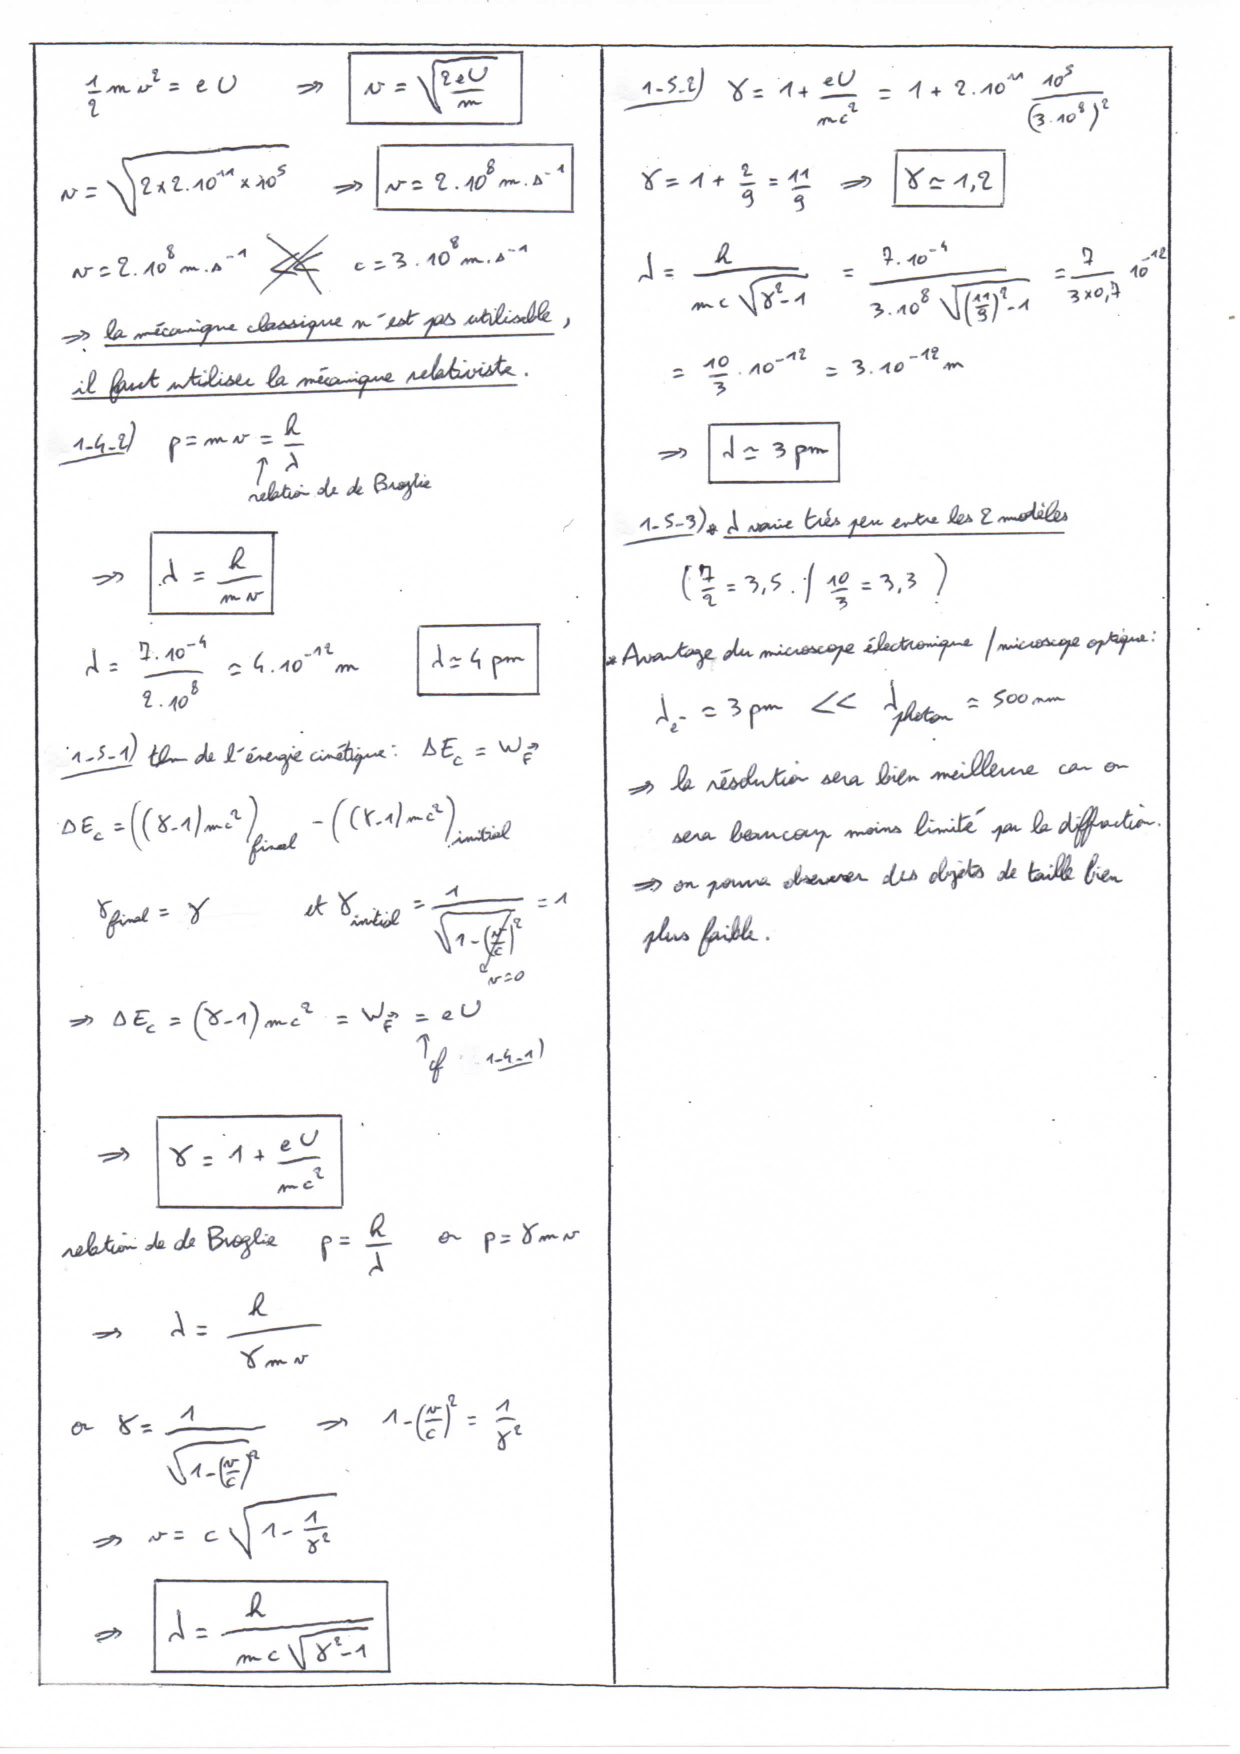 1/2 m v² = e U ⇒ v = √(2eU/m)
v = √(2×2.10¹¹×10⁵) ⇒ v = 2.10⁸ m.s⁻¹
v = 2.10⁸ m.s⁻¹ ≪ c = 3.10⁸ m.s⁻¹
⇒ la mécanique classique n'est pas utilisable,
il faut utiliser la mécanique relativiste.
1-4-2) p = m v = h/λ
↑
relation de de Broglie
⇒ λ = h/(m v)
λ = 7.10⁻⁴/2.10⁸ ≃ 4.10⁻¹² m λ ≃ 4 pm
1-5-1) thm de l'énergie cinétique : ΔE_c = W_F⃗
ΔE_c = ((γ-1)mc²)_final - ((γ-1)mc²)_initial
γ_final = γ et γ_initial = 1/√(1-(v/c)²) = 1
v=0
⇒ ΔE_c = (γ-1) mc² = W_F⃗ = e U
↑ cf 1-4-1)
⇒ γ = 1 + eU/mc²
relation de de Broglie p = h/λ or p = γ m v
⇒ λ = h/(γ m v)
or γ = 1/√(1-(v/c)²) ⇒ 1-(v/c)² = 1/γ²
⇒ v = c √(1 - 1/γ²)
⇒ λ = h/(m c √(γ²-1))
1-5-2) γ = 1 + eU/mc² = 1 + 2.10¹¹ 10⁵/(3.10⁸)²
γ = 1 + 2/9 = 11/9 ⇒ γ ≃ 1,2
λ = h/(m c √(γ²-1)) = 7.10⁻⁴/(3.10⁸ √((11/9)²-1)) = 7/(3×0,7) 10⁻¹²
= 10/3 . 10⁻¹² = 3.10⁻¹² m
⇒ λ ≃ 3 pm
1-5-3) * λ varie très peu entre les 2 modèles
(7/2 = 3,5 . / 10/3 = 3,3)
* Avantage du microscope électronique / microscope optique :
λ_e⁻ ≃ 3 pm << λ_photon ≃ 500 nm
⇒ la résolution sera bien meilleure car on
sera beaucoup moins limité par la diffraction.
⇒ on pourra observer des objets de taille bien
plus faible.